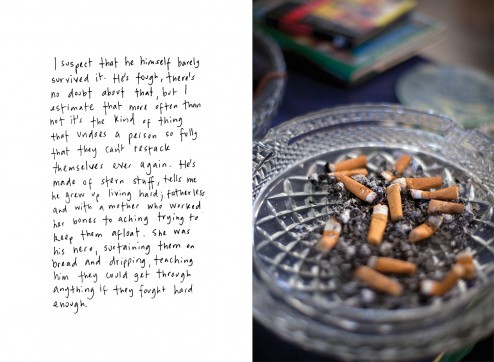 I suspect that he himself barely
survived it. He's tough, there's
no doubt about that, but I
estimate that more often than
not it's the kind of thing
that undoes a person so fully
that they can't restack
themselves ever again. He's
made of stern stuff, tells me
he grew up living hard; fatherless
and with a mother who worked
her bones to aching trying to
keep them afloat. She was
his hero, sustaining them on
bread and dripping, teaching
him they could get through
anything if they fought hard
enough.